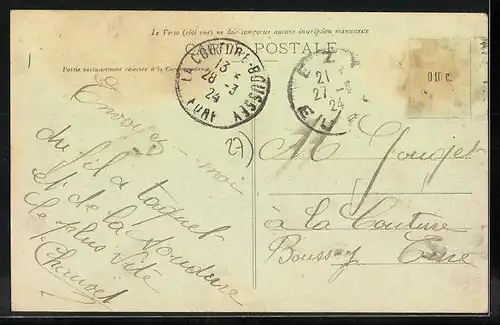 Le Verso (côté vue) ne doit comporter aucune inscription manuscrite
CARTE POSTALE
Partie exclusivement réservée à la Correspondance
LA COUTURE-BOUSSEY
13 *
28 - 3
24
EURE
EZY
21
27 -
24
EURE
010 c.
27)
Envoyez - moi
du fil a taquet
et de la soudure
le plus vite
M Goujet
à la Couture
Boussey Eure